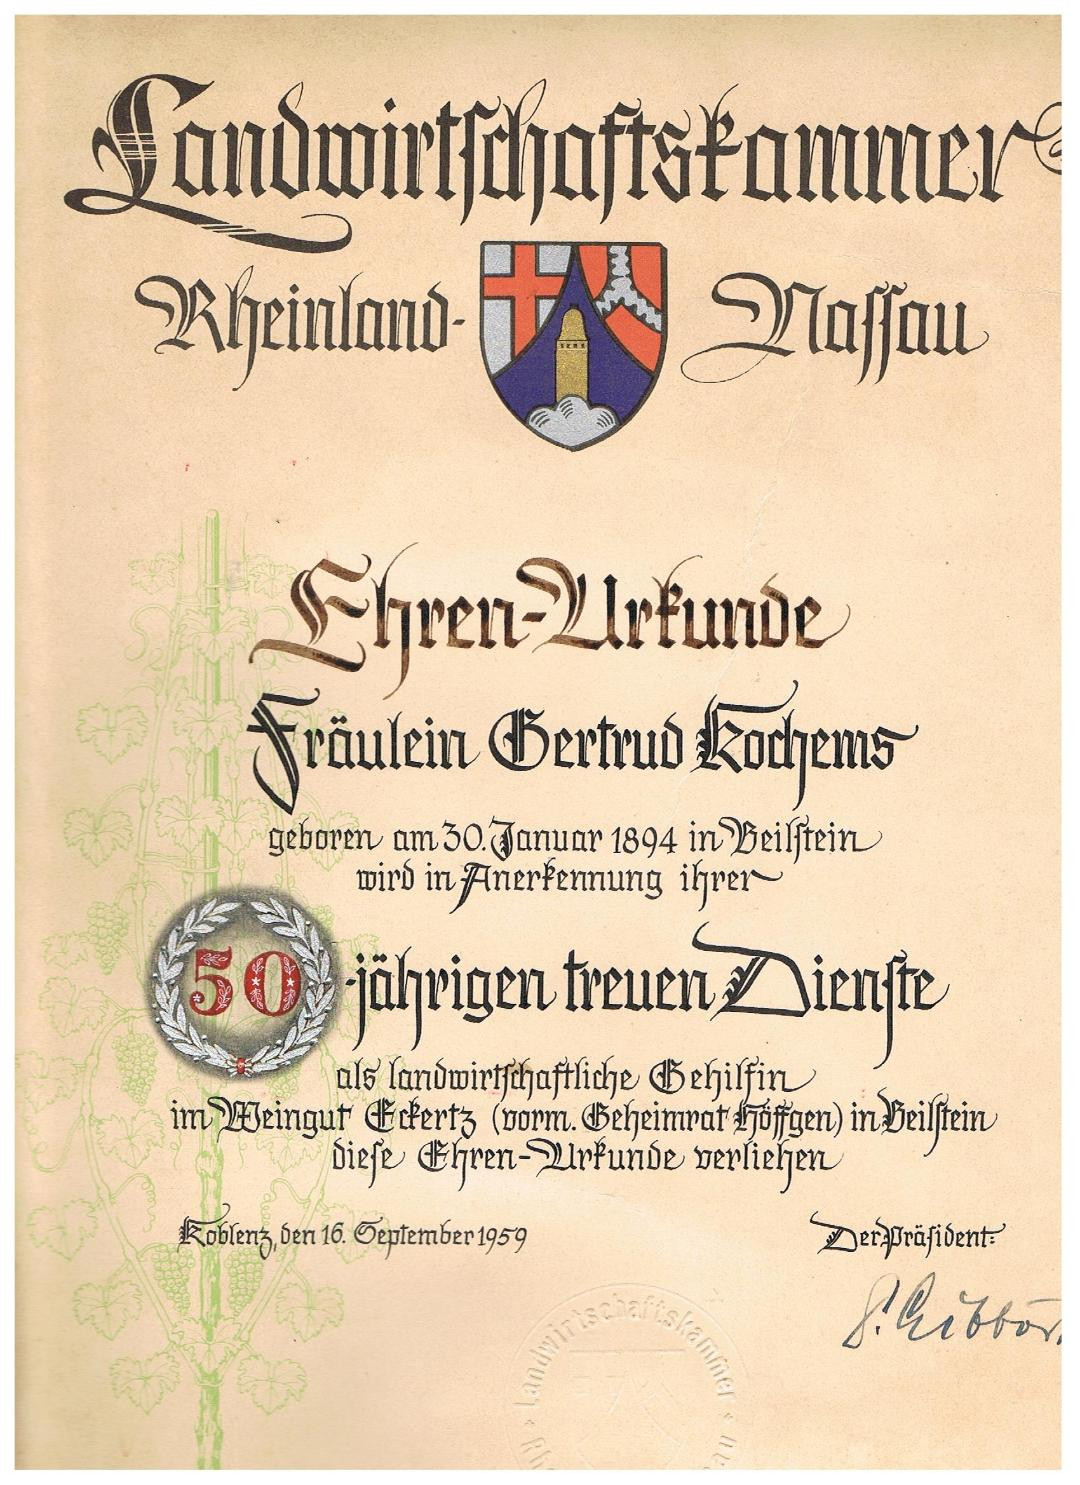 Landwirtschaftskammer
Rheinland- Nassau
Ehren-Urkunde
Fräulein Gertrud Kochems
geboren am 30. Januar 1894 in Beilstein
wird in Anerkennung ihrer
50-jährigen treuen Dienste
als landwirtschaftliche Gehilfin
im Weingut Eckertz (vorm. Geheimrat Höffgen) in Beilstein
diese Ehren-Urkunde verliehen
Koblenz, den 16. September 1959
Der Präsident:
Landwirtschaftskammer